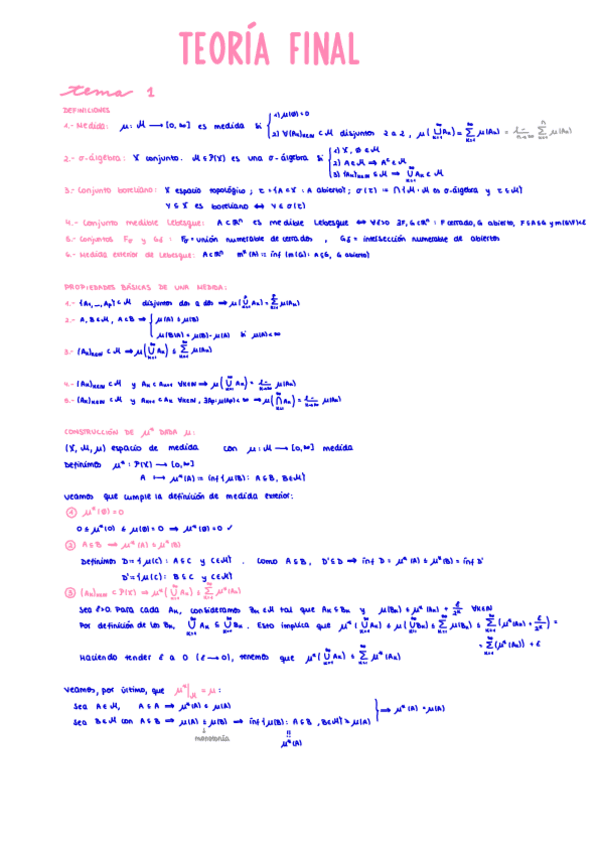 TEORÍA FINAL
tema 1
DEFINICIONES
1.- Medida: μ: M → [0,∞] es medida si { 1) μ(∅)=0
2) ∀(Aₙ)ₙ∈ℕ ⊂ M disjuntos 2 a 2, μ(⋃Aₙ) = ∑ μ(Aₙ)
2.- σ-álgebra: X conjunto. M ⊆ P(X) es una σ-álgebra si { 1) X, ∅ ∈ M
2) A ∈ M ⇒ Aᶜ ∈ M
3) (Aₙ)ₙ∈ℕ ⊆ M ⇒ ⋃ Aₙ ∈ M
3.- Conjunto boreliano: X espacio topológico; τ = {A ⊂ X : A abierto}; σ(τ) := ⋂{M : M es σ-álgebra y τ ⊆ M}
Y ⊆ X es boreliano ⇔ Y ∈ σ(τ)
4.- Conjunto medible Lebesgue: A ⊂ ℝⁿ es medible Lebesgue ⇔ ∀ε>0 ∃F, G ⊂ ℝⁿ : F cerrado, G abierto, F ⊆ A ⊆ G y m(G\F)<ε
5.- Conjuntos Fσ y Gδ : Fσ = unión numerable de cerrados , Gδ = intersección numerable de abiertos
6.- Medida exterior de Lebesgue: A ⊂ ℝⁿ m*(A) := inf {m(G) : A ⊆ G, G abierto}
PROPIEDADES BÁSICAS DE UNA MEDIDA:
1.- {A₁,…,Aₚ} ⊂ M disjuntos dos a dos ⇒ μ(⋃Aₙ) = ∑ μ(Aₙ)
2.- A, B ∈ M, A ⊂ B ⇒ { μ(A) ≤ μ(B)
μ(B\A) = μ(B) - μ(A) si μ(A)<∞
3.- (Aₙ)ₙ∈ℕ ⊂ M ⇒ μ(⋃Aₙ) ≤ ∑ μ(Aₙ)
4.- (Aₙ)ₙ∈ℕ ⊂ M y Aₙ ⊂ Aₙ₊₁ ∀n∈ℕ ⇒ μ(⋃Aₙ) = lim μ(Aₙ)
5.- (Aₙ)ₙ∈ℕ ⊂ M y Aₙ₊₁ ⊂ Aₙ ∀n∈ℕ, ∃Aₚ: μ(Aₚ)<∞ ⇒ μ(⋂Aₙ) = lim μ(Aₙ)
CONSTRUCCIÓN DE μ* DADA μ:
(X, M, μ) espacio de medida con μ: M → [0,∞] medida
Definimos μ* : P(X) → [0,∞]
A ↦ μ*(A) := inf {μ(B) : A ⊆ B, B∈M}
Veamos que cumple la definición de medida exterior:
① μ*(∅) = 0
0 ≤ μ*(∅) ≤ μ(∅) = 0 ⇒ μ*(∅) = 0 ✓
② A ⊆ B ⇒ μ*(A) ≤ μ*(B)
Definimos D = {μ(C) : A ⊆ C y C∈M} . Como A ⊆ B, D' ⊆ D ⇒ inf D = μ*(A) ≤ μ*(B) = inf D'
D' = {μ(C) : B ⊆ C y C∈M}
③ (Aₙ)ₙ∈ℕ ⊂ P(X) ⇒ μ*(⋃Aₙ) ≤ ∑ μ*(Aₙ)
Sea ε>0. Para cada Aₙ, consideramos Bₙ ∈ M tal que Aₙ ⊆ Bₙ y μ(Bₙ) ≤ μ*(Aₙ) + ε/2ⁿ ∀n∈ℕ
Por definición de los Bₙ, ⋃Aₙ ⊆ ⋃Bₙ. Esto implica que μ*(⋃Aₙ) ≤ μ(⋃Bₙ) ≤ ∑ μ(Bₙ) ≤ ∑(μ*(Aₙ) + ε/2ⁿ) =
= ∑(μ*(Aₙ)) + ε
Haciendo tender ε a 0 (ε→0), tenemos que μ*(⋃Aₙ) ≤ ∑ μ*(Aₙ)
Veamos, por último, que μ*|M = μ :
Sea A∈M, A ⊆ A ⇒ μ*(A) ≤ μ(A)
Sea B∈M con A ⊆ B ⇒ μ(A) ≤ μ(B) ⇒ inf {μ(B) : A ⊆ B, B∈M} ≥ μ(A) } ⇒ μ*(A) = μ(A)
monotonía
μ*(A)